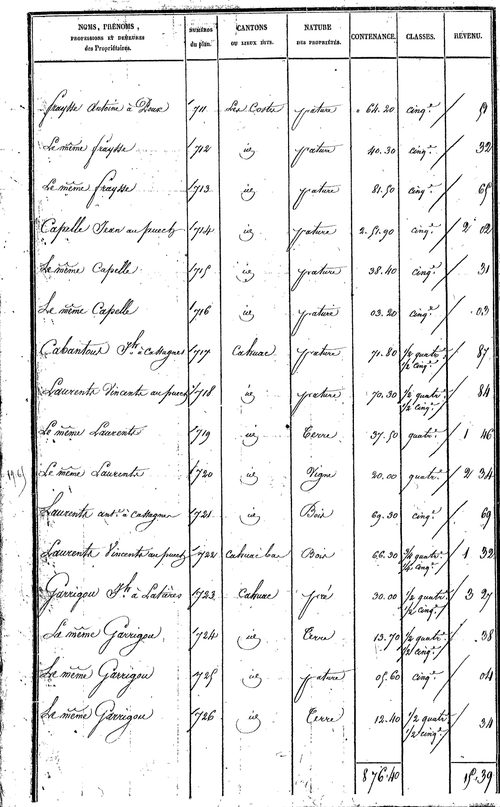 NOMS, PRÉNOMS, PROFESSIONS ET DEMEURES des Propriétaires. NUMÉROS du plan. CANTONS OU LIEUX DITS. NATURE DES PROPRIÉTÉS. CONTENANCE. CLASSES. REVENU.
fraysse Antoine à 711 Les Costes pature 64.20 cinq.e 51
Le même fraysse 712 id pature 40.30 cinq.e 32
Le même fraysse 713 id pature 81.50 cinq.e 65
Capelle Jean au puech 714 id pature 2.51.90 cinq.e 2 02
Le même Capelle 715 id pature 38.40 cinq.e 31
Le même Capelle 716 id pature 03.20 cinq.e 03
Cabantous Jh à Cassagnes 717 Cahuac pature 71.80 1/2 quatr. 1/2 cinq.e 87
Laurents Vincents au puech 718 id pature 70.30 1/2 quatr. 1/2 cinq.e 84
Le même Laurents 719 id Terre 37.50 quatr. 1 46
Le même Laurents 720 id Vigne 20.00 quatr. 2 34
Laurents ant.e à Cassagnes 721 id Bois 69.30 cinq.e 69
Laurents Vincents au puech 722 Cahuac bas Bois 66.30 quatr. cinq.e 1 32
Garrigou Jh à 723 Cahuac pré 30.00 1/2 quatr. 1/2 cinq.e 3 27
Le même Garrigou 724 id Terre 13.70 1/2 quatr. 1/2 cinq.e 38
Le même Garrigou 725 id pature 05.60 cinq.e 04
Le même Garrigou 726 id Terre 12.40 1/2 quatr. 1/2 cinq.e 34
876.40 15.39